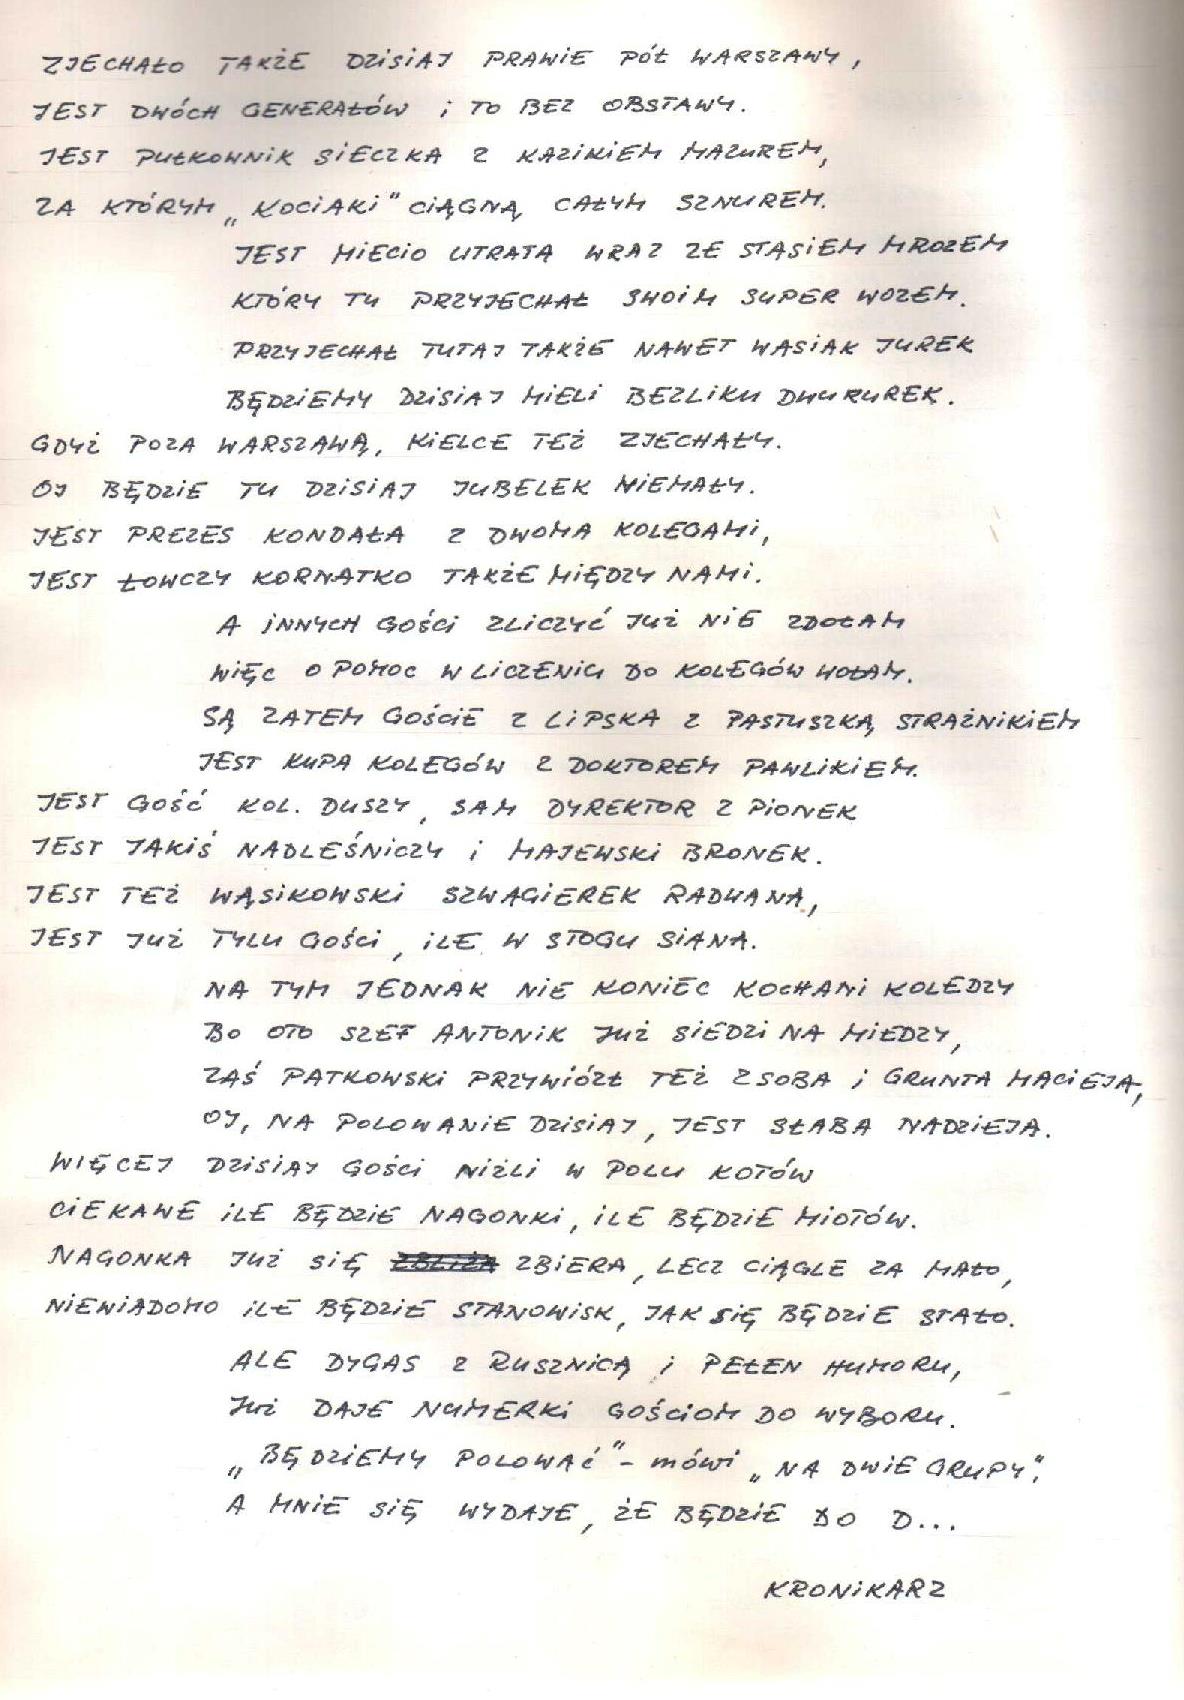 ZJECHAŁO TAKŻE DZISIAJ PRAWIE PÓŁ WARSZAWY,
JEST DWÓCH GENERAŁÓW i TO BEZ OBSTAWY.
JEST PUŁKOWNIK SIECZKA Z KAZIKIEM MAZUREM,
ZA KTÓRYM „KOCIAKI" CIĄGNĄ CAŁYM SZNUREM.
JEST MIECIO UTRATA WRAZ ZE STASIEM MROZEM
KTÓRY TU PRZYJECHAŁ SWOIM SUPER WOZEM.
PRZYJECHAŁ TUTAJ TAKŻE NAWET WASIAK JUREK
BĘDZIEMY DZISIAJ MIELI BEZLIKU DWURUREK.
GDYŻ POZA WARSZAWĄ, KIELCE TEŻ ZJECHAŁY.
OJ BĘDZIE TU DZISIAJ JUBELEK NIEMAŁY.
JEST PREZES KONDAŁA Z DWOMA KOLEGAMI,
JEST ŁOWCZY KORNATKO TAKŻE MIĘDZY NAMI.
A INNYCH GOŚCI ZLICZYĆ JUŻ NIE ZDOŁAM
WIĘC O POMOC W LICZENIU DO KOLEGÓW WOŁAM.
SĄ ZATEM GOŚCIE Z LIPSKA Z PASTUSZKĄ STRAŻNIKIEM
JEST KUPA KOLEGÓW Z DOKTOREM PAWLIKIEM.
JEST GOŚĆ KOL. DUSZY, SAM DYREKTOR Z PIONEK
JEST JAKIŚ NADLEŚNICZY i MAJEWSKI BRONEK.
JEST TEŻ WĄSIKOWSKI SZWAGIEREK RADWANA,
JEST JUŻ TYLU GOŚCI, ILE W STOGU SIANA.
NA TYM JEDNAK NIE KONIEC KOCHANI KOLEDZY
BO OTO SZEF ANTONIK JUŻ SIEDZI NA MIEDZY,
ZAŚ PATKOWSKI PRZYWIÓZŁ TEŻ Z SOBA i GRUNTA MACIEJA,
OJ, NA POLOWANIE DZISIAJ, JEST SŁABA NADZIEJA.
WIĘCEJ DZISIAJ GOŚCI NIŻLI W POLU KOTÓW
CIEKAWE ILE BĘDZIE NAGONKI, ILE BĘDZIE MIOTÓW.
NAGONKA JUŻ SIĘ ZBLIŻA ZBIERA, LECZ CIĄGLE ZA MAŁO,
NIEWIADOMO ILE BĘDZIE STANOWISK, JAK SIĘ BĘDZIE STAŁO.
ALE DYGAS Z RUSZNICĄ i PEŁEN HUMORU,
JUŻ DAJE NUMERKI GOŚCIOM DO WYBORU.
„BĘDZIEMY POLOWAĆ" – mówi „NA DWIE GRUPY".
A MNIE SIĘ WYDAJE, ŻE BĘDZIE DO D...
KRONIKARZ